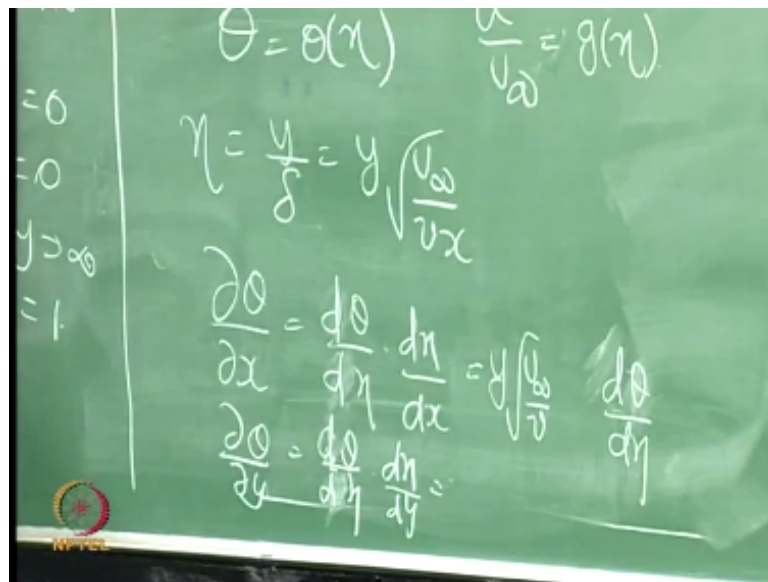 =0
=0
y→∞
=1
θ = θ(η) u/U∞ = g(η)
η = y/δ = y√(U∞/νx)
∂θ/∂x = dθ/dη · dη/dx = y√(U∞/ν) dθ/dη
∂θ/∂y = dθ/dη · dη/dy =
NPTEL